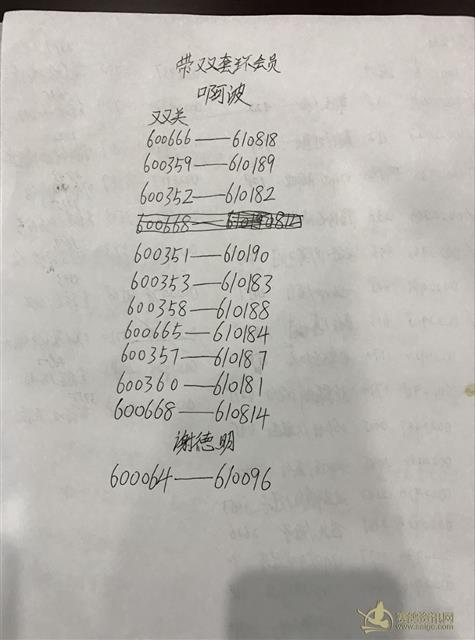 带双套环会员
啊波
双关
600666——610818
600359——610189
600352——610182
600668——
600351——610190
600353——610183
600358——610188
600665——610184
600357——610187
600360——610181
600668——610814
谢德明
600064——610096
赛鸽资讯网
www.saige.com